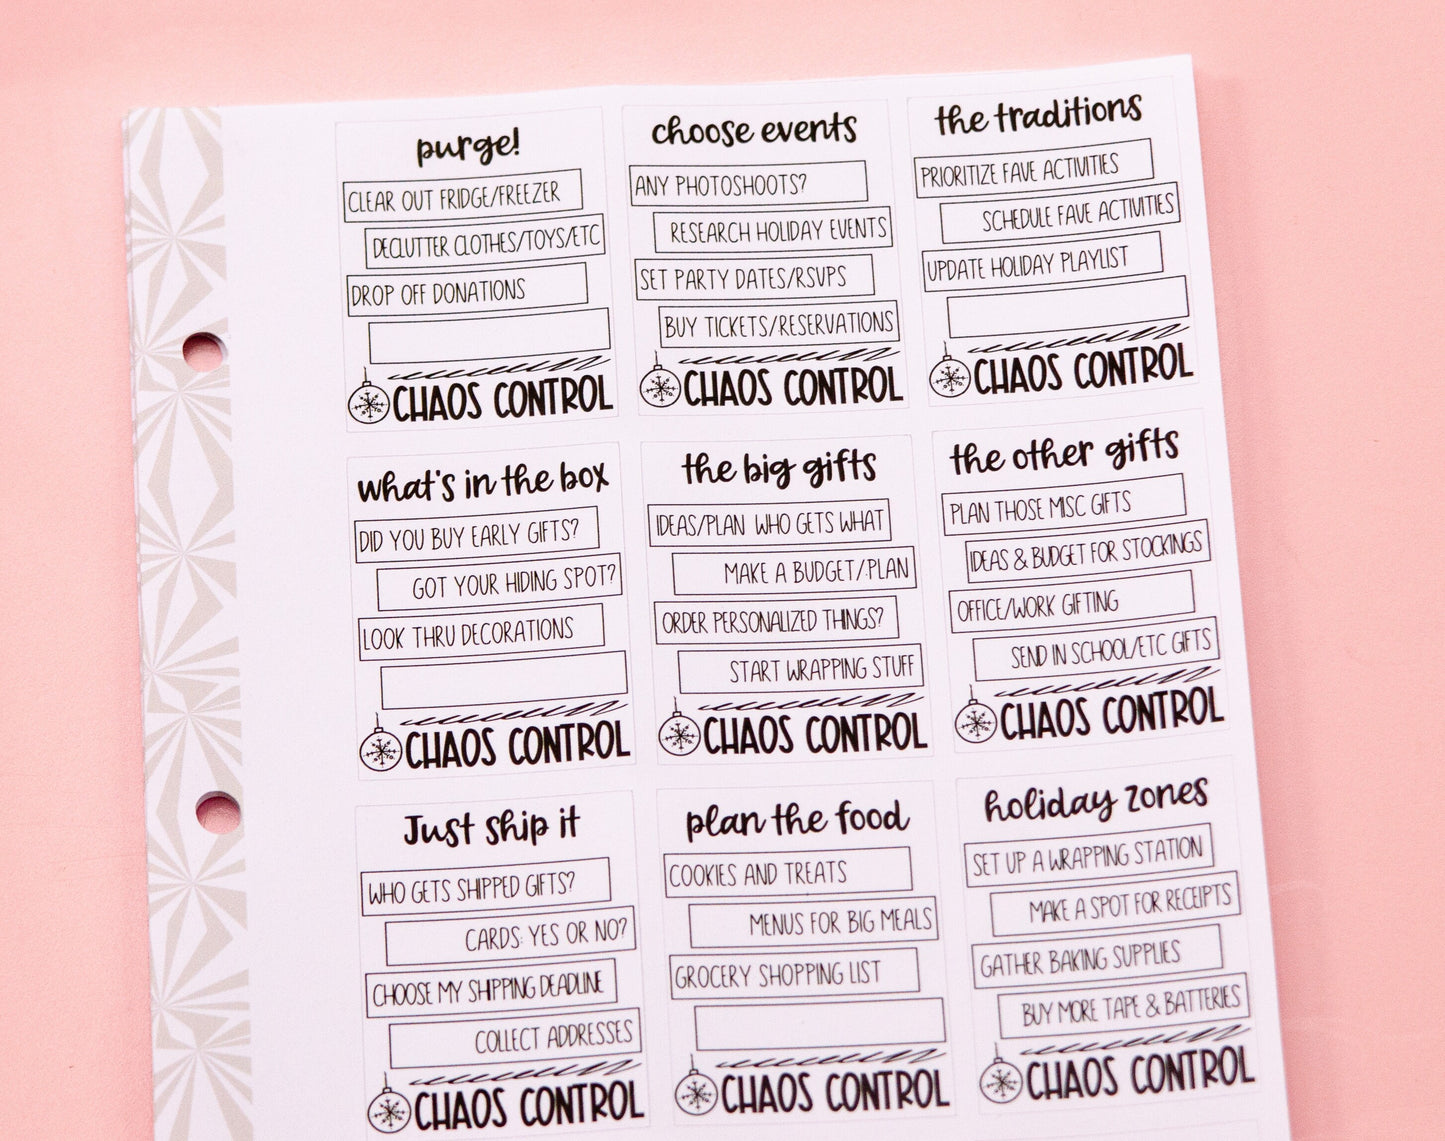 purge!
CLEAR OUT FRIDGE/FREEZER
DECLUTTER CLOTHES/TOYS/ETC
DROP OFF DONATIONS
CHAOS CONTROL
choose events
ANY PHOTOSHOOTS?
RESEARCH HOLIDAY EVENTS
SET PARTY DATES/RSVPS
BUY TICKETS/RESERVATIONS
CHAOS CONTROL
the traditions
PRIORITIZE FAVE ACTIVITIES
SCHEDULE FAVE ACTIVITIES
UPDATE HOLIDAY PLAYLIST
CHAOS CONTROL
what's in the box
DID YOU BUY EARLY GIFTS?
GOT YOUR HIDING SPOT?
LOOK THRU DECORATIONS
CHAOS CONTROL
the big gifts
IDEAS/PLAN WHO GETS WHAT
MAKE A BUDGET/PLAN
ORDER PERSONALIZED THINGS?
START WRAPPING STUFF
CHAOS CONTROL
the other gifts
PLAN THOSE MISC GIFTS
IDEAS & BUDGET FOR STOCKINGS
OFFICE/WORK GIFTING
SEND IN SCHOOL/ETC GIFTS
CHAOS CONTROL
Just ship it
WHO GETS SHIPPED GIFTS?
CARDS: YES OR NO?
CHOOSE MY SHIPPING DEADLINE
COLLECT ADDRESSES
CHAOS CONTROL
plan the food
COOKIES AND TREATS
MENUS FOR BIG MEALS
GROCERY SHOPPING LIST
CHAOS CONTROL
holiday zones
SET UP A WRAPPING STATION
MAKE A SPOT FOR RECEIPTS
GATHER BAKING SUPPLIES
BUY MORE TAPE & BATTERIES
CHAOS CONTROL